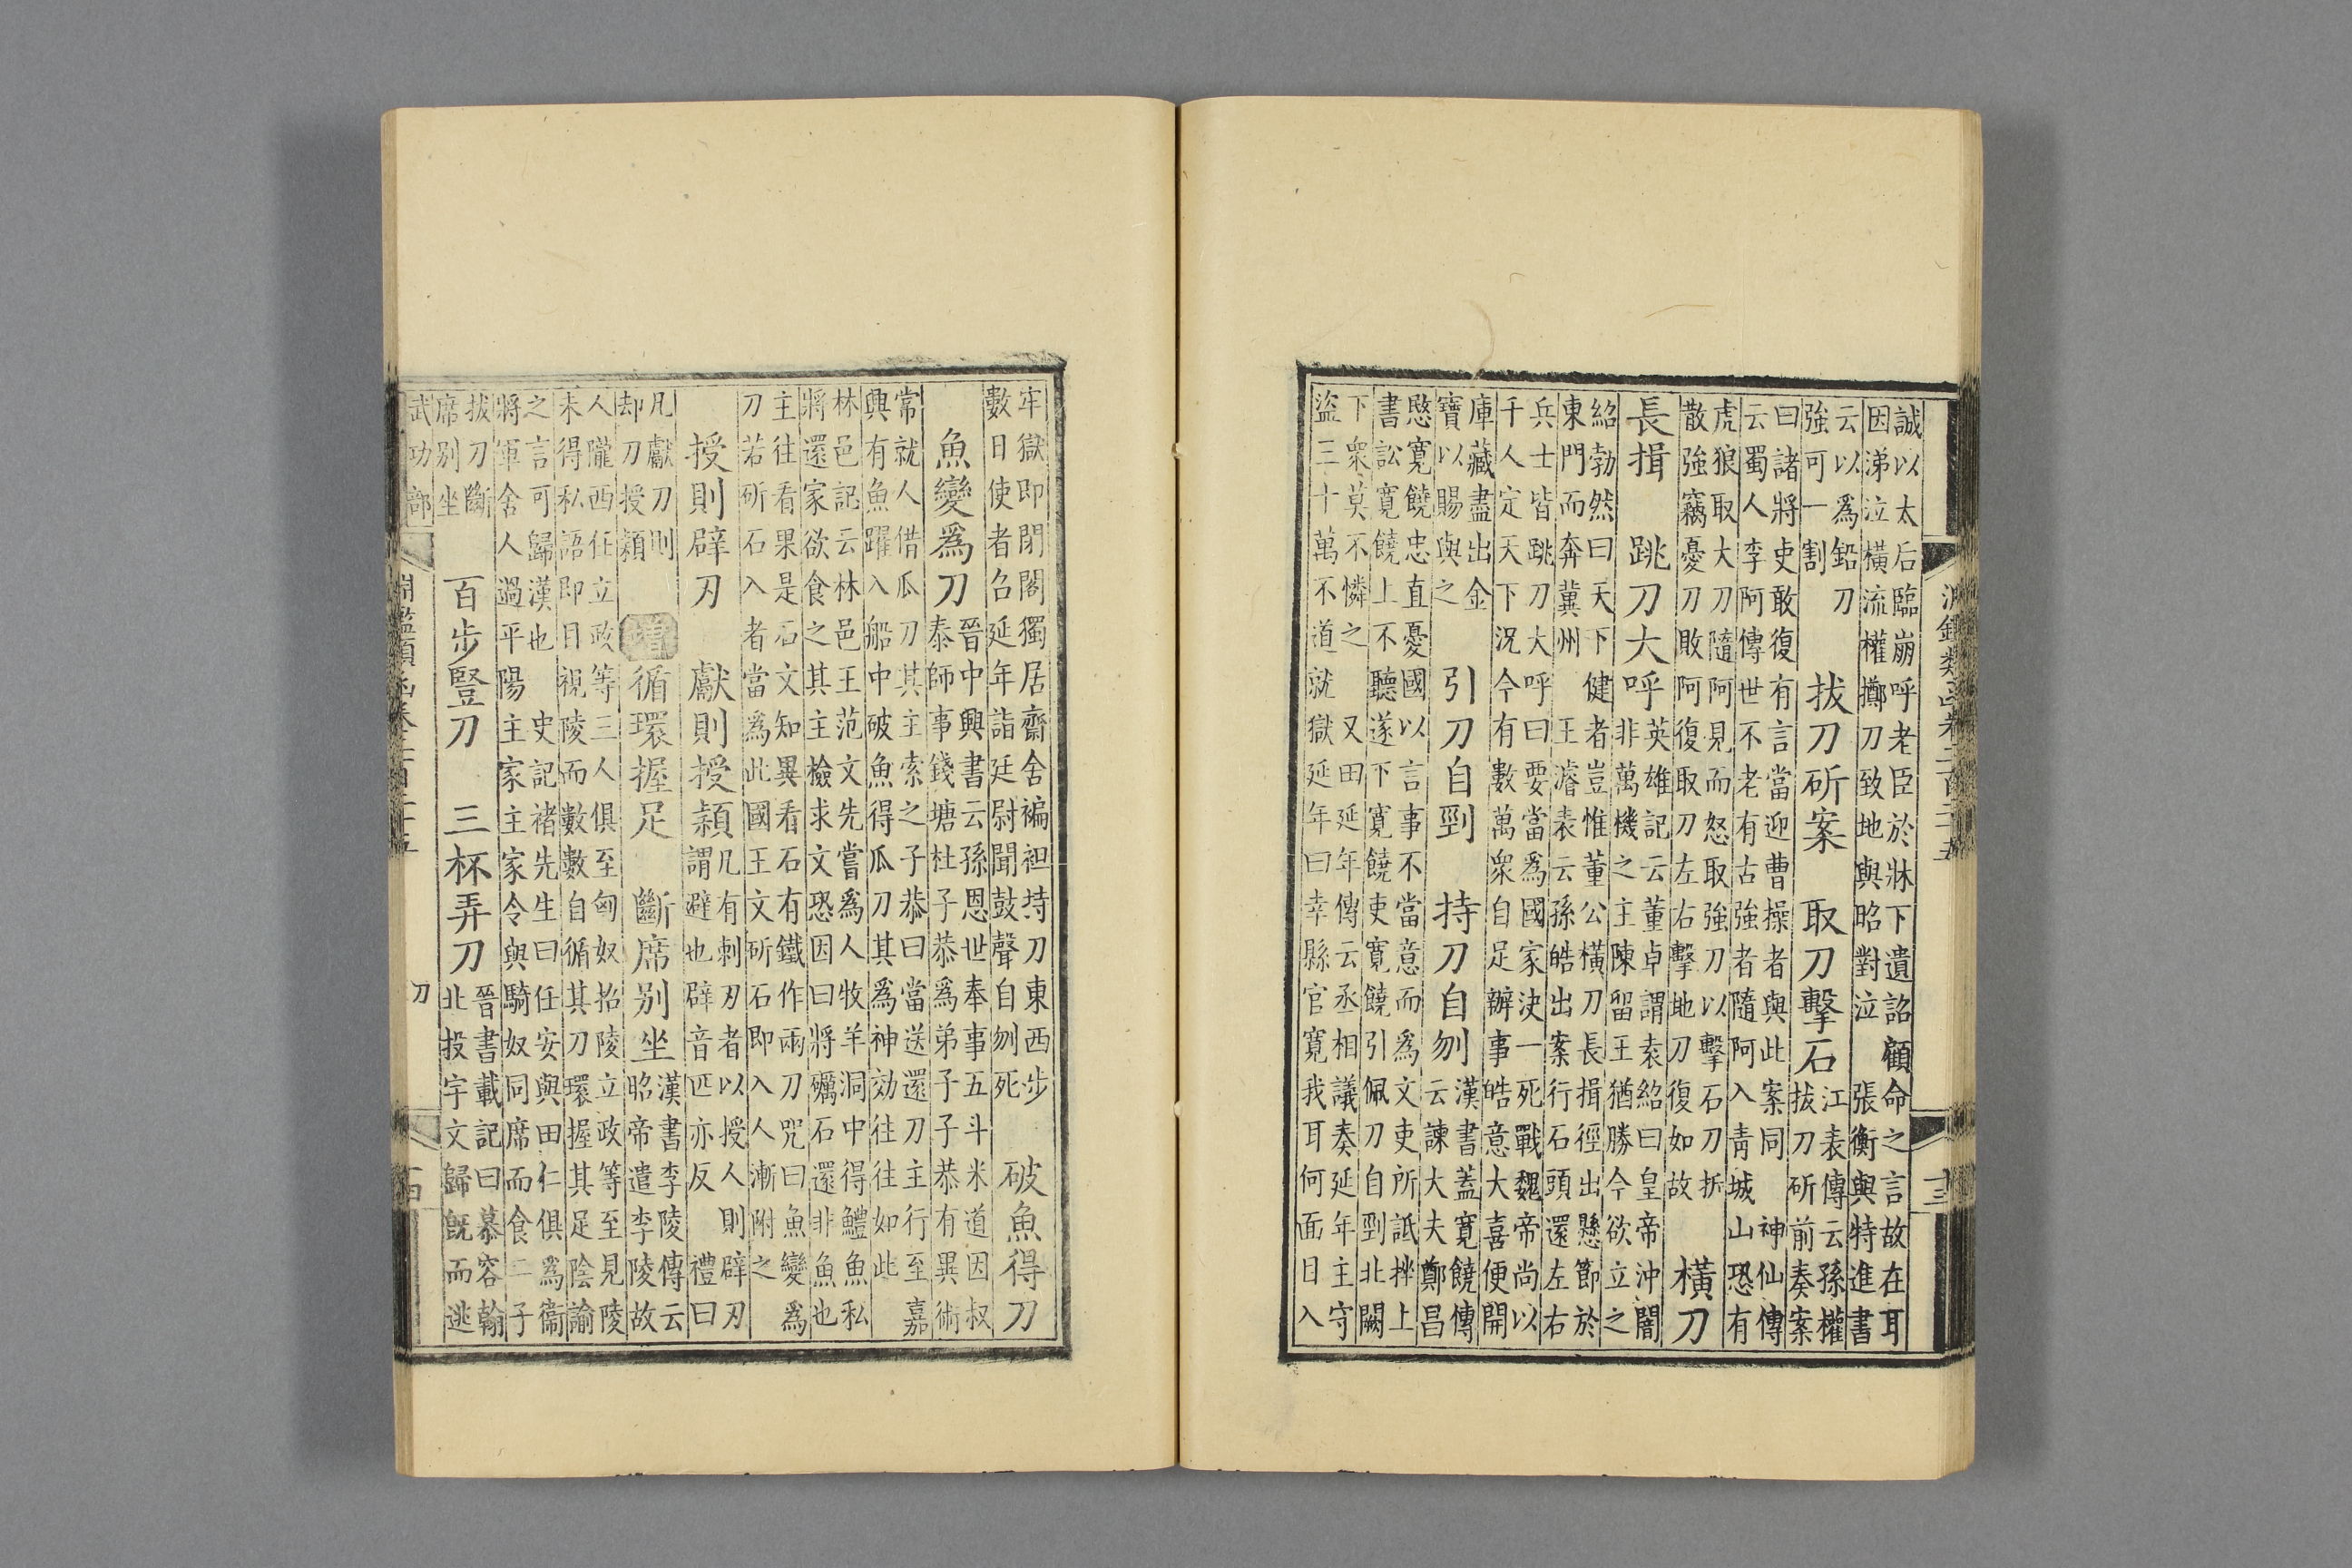 淵鑑類函卷二百二十五 十三
誠以太后臨崩呼老臣於牀下遺詔顧命之言故在耳
因涕泣橫流權擲刀致地與昭對泣 張衡與特進書
云以爲鉛刀
強可一割
拔刀斫案 取刀擊石
江表傳云孫權
拔刀斫前奏案
曰諸將吏敢復有言當迎曹操者與此案同 神仙傳
云蜀人李阿傳世不老有古強者隨阿入靑城山恐有
虎狼取大刀隨阿見而怒取強刀以擊石刀折
散強竊憂刀敗阿復取刀左右擊地刀復如故
橫刀
長揖 跳刀大呼
英雄記云董卓謂袁紹曰皇帝沖闇
非萬機之主陳留王猶勝今欲立之
紹勃然曰天下健者豈惟董公橫刀長揖徑出懸節於
東門而奔冀州 王濬表云孫皓出案行石頭還左右
兵士皆跳刀大呼曰要當爲國家決一死戰魏帝尚以
千人定天下況今有數萬衆自足辦事皓意大喜便開
庫藏盡出金
寶以賜與之
引刀自剄 持刀自刎
漢書蓋寬饒傳
云諫大夫鄭昌
愍寬饒忠直憂國以言事不當意而爲文吏所詆挫上
書訟寬饒上不聽遂下寬饒吏寬饒引佩刀自剄北闕
下衆莫不憐之 又田延年傳云丞相議奏延年主守
盜三十萬不道就獄延年曰幸縣官寬我耳何面目入
牢獄即閉閣獨居齋舍褊袒持刀東西步
數日使者召延年詣廷尉聞鼓聲自刎死
破魚得刀
魚變爲刀
晉中興書云孫恩世奉事五斗米道因叔
泰師事錢塘杜子恭爲弟子子恭有異術
常就人借瓜刀其主索之子恭曰當送還刀主行至嘉
興有魚躍入船中破魚得瓜刀其爲神効往往如此
林邑記云林邑王范文先嘗爲人牧羊洞中得鱧魚私
將還家欲食之其主檢求文恐因曰將礪石還非魚也
主往看果是石文知異看石有鐵作兩刀咒曰魚變爲
刀若斫石入者當爲此國王文斫石即入人漸附之
授則辟刃 獻則授穎
凡有刺刃者以授人則辟刃
謂避也辟音匹亦反 禮曰
凡獻刀則
却刀授穎
循環握足 斷席别坐
漢書李陵傳云
昭帝遣李陵故
人隴西任立政等三人俱至匈奴招陵立政等至見陵
未得私語即目視陵而數數自循其刀環握其足陰諭
之言可歸漢也 史記褚先生曰任安與田仁俱爲衞
將軍舍人過平陽主家主家令與騎奴同席而食二子
拔刀斷
席别坐
百步豎刀 三杯弄刀
晉書載記曰慕容翰
北投宇文歸旣而逃
武功部 淵鑑類函卷二百二十五 刀 十四